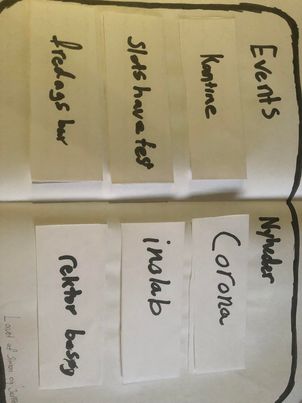 Events
Kantine
Slotshavefest
fredags bar
Nyheder
Corona
inolab
rektor